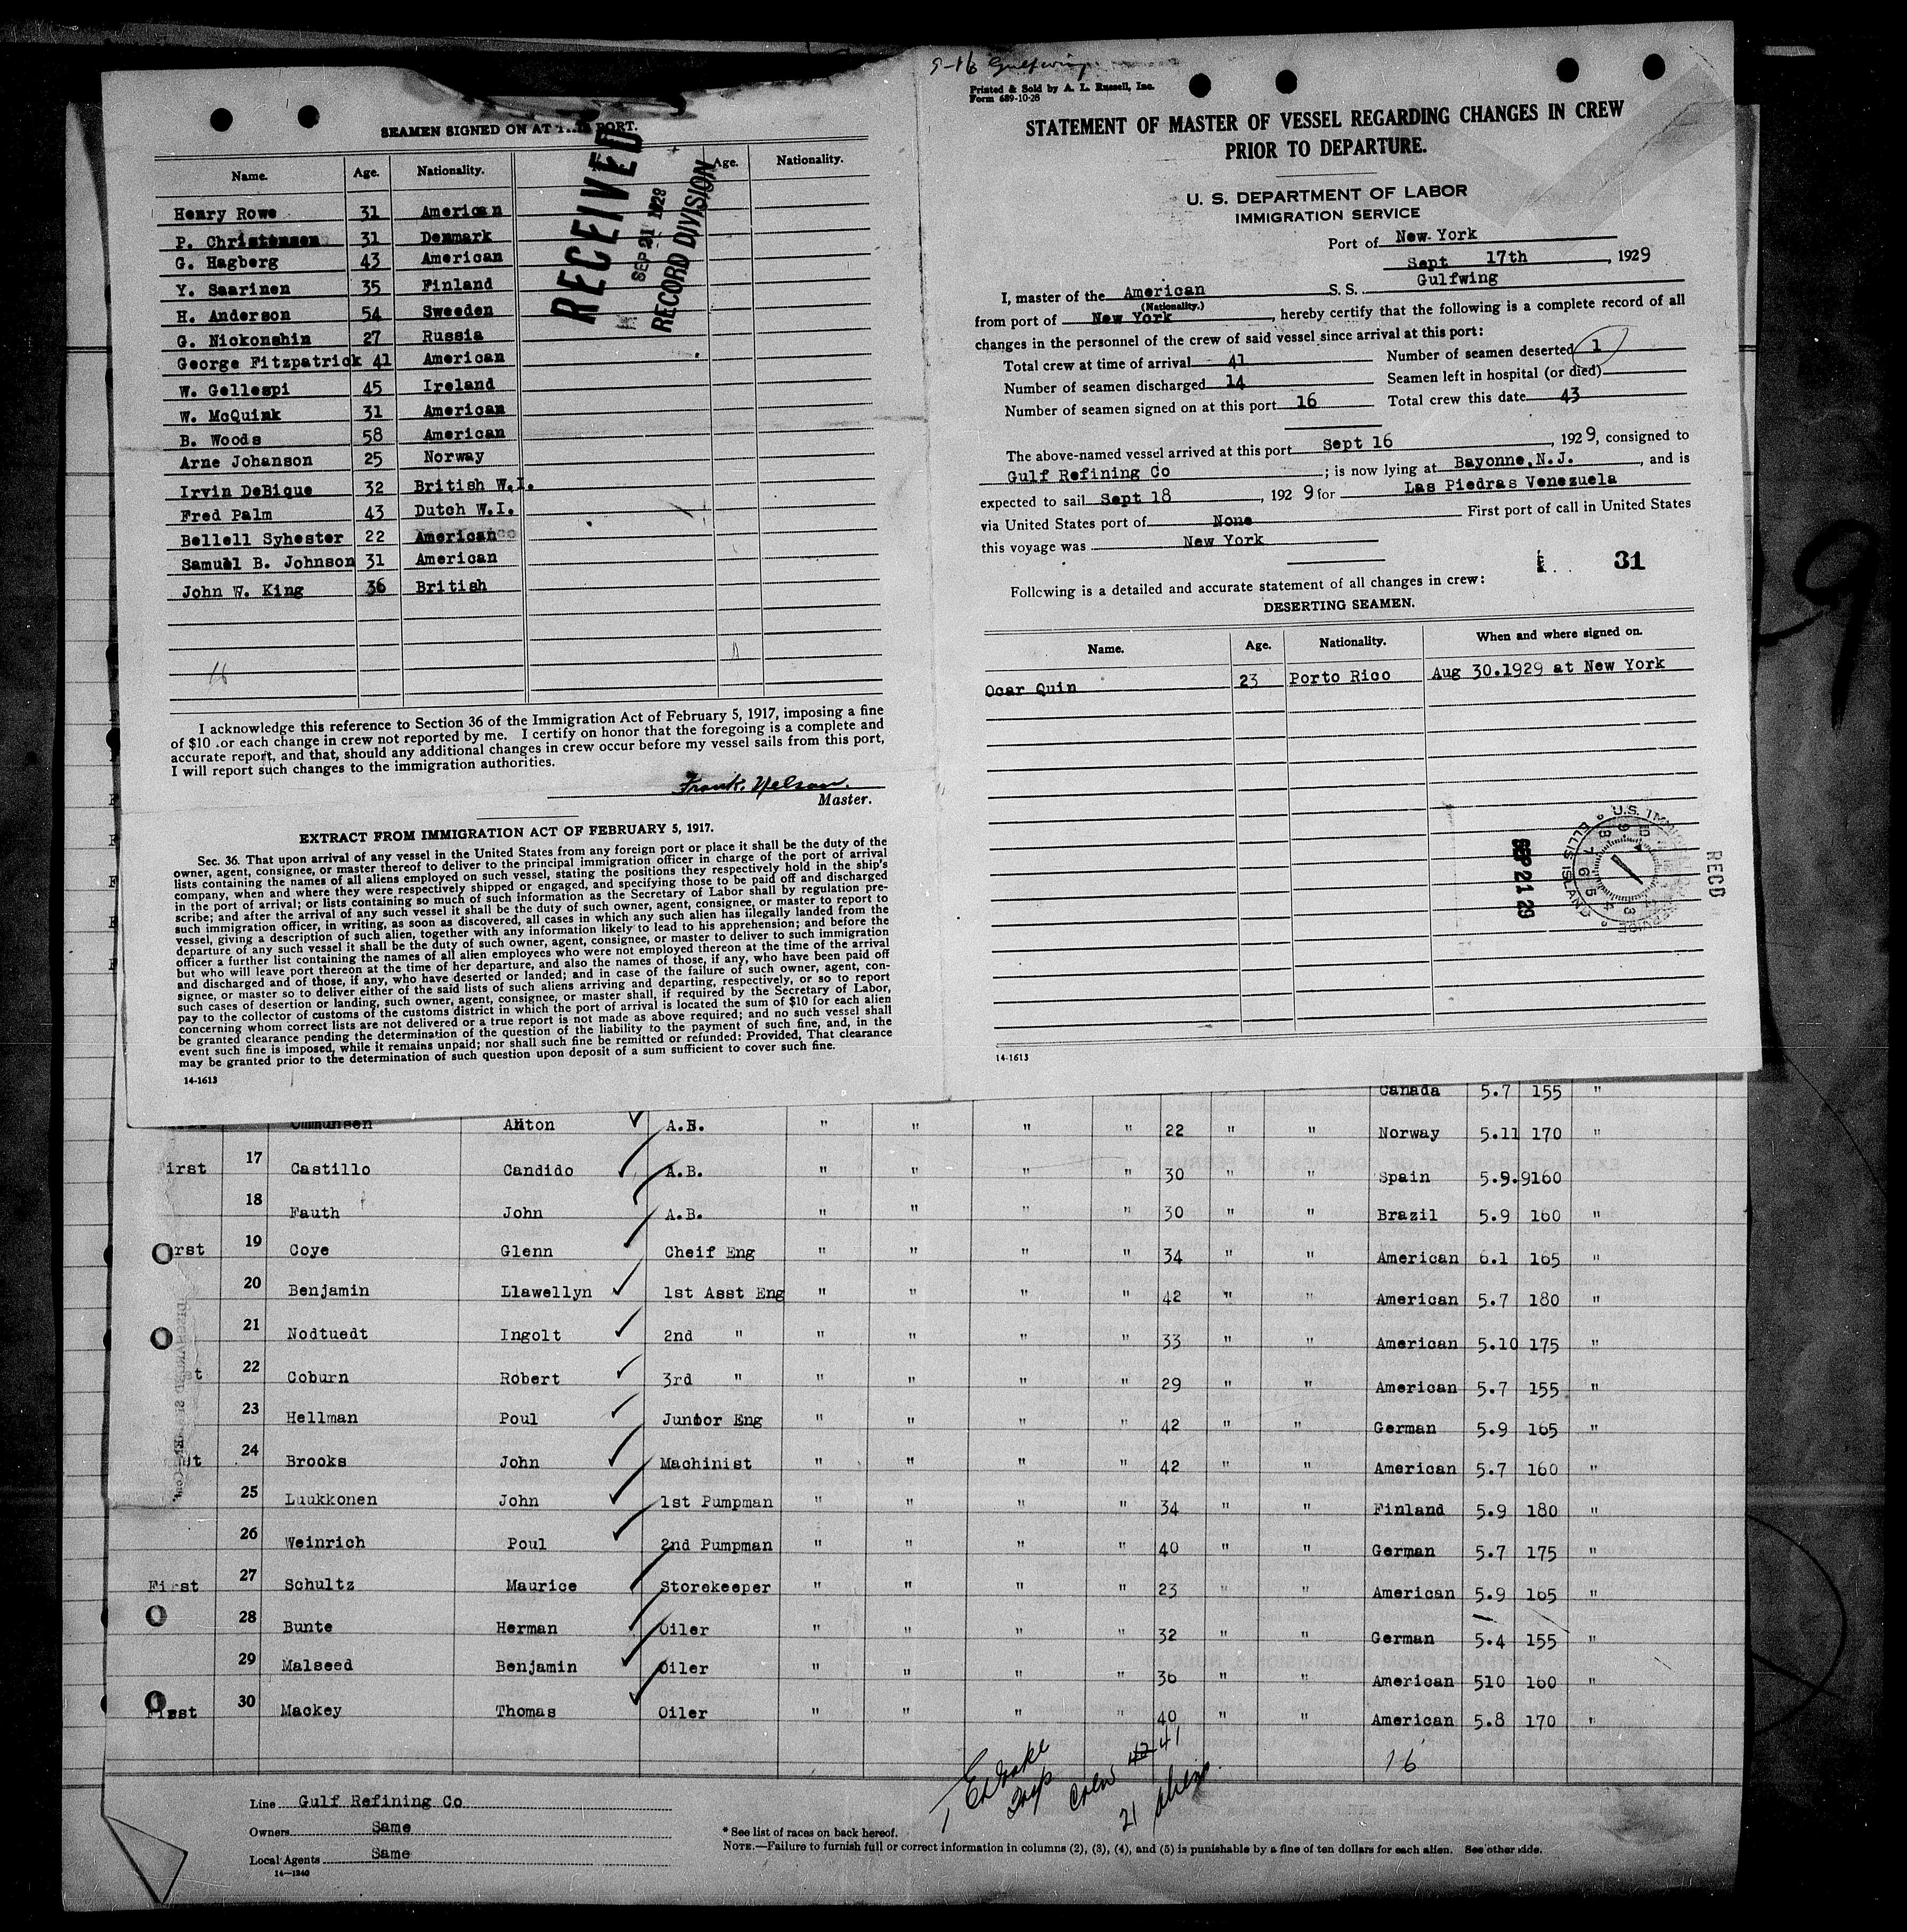 SEAMEN SIGNED ON AT THIS PORT.
Name. Age. Nationality. Age. Nationality.
Henry Rowe 31 American
P. Christensen 31 Denmark
G. Hagberg 43 American
Y. Saarinen 35 Finland
H. Anderson 54 Sweeden
G. Nickonshin 27 Russia
George Fitzpatrick 41 American
W. Gellespi 45 Ireland
W. McQuink 31 American
B. Woods 58 American
Arne Johanson 25 Norway
Irvin DeBique 32 British W.I.
Fred Palm 43 Dutch W.I.
Bellell Syhester 22 American
Samuel B. Johnson 31 American
John W. King 36 British
16
RECEIVED
SEP 21 1928
RECORD DIVISION
I acknowledge this reference to Section 36 of the Immigration Act of February 5, 1917, imposing a fine
of $10 .or each change in crew not reported by me. I certify on honor that the foregoing is a complete and
accurate report, and that, should any additional changes in crew occur before my vessel sails from this port,
I will report such changes to the immigration authorities.
Frank Nelson.
Master.
EXTRACT FROM IMMIGRATION ACT OF FEBRUARY 5, 1917.
Sec. 36. That upon arrival of any vessel in the United States from any foreign port or place it shall be the duty of the
owner, agent, consignee, or master thereof to deliver to the principal immigration officer in charge of the port of arrival
lists containing the names of all aliens employed on such vessel, stating the positions they respectively hold in the ship's
company, when and where they were respectively shipped or engaged, and specifying those to be paid off and discharged
in the port of arrival; or lists containing so much of such information as the Secretary of Labor shall by regulation pre-
scribe; and after the arrival of any such vessel it shall be the duty of such owner, agent, consignee, or master to report to
such immigration officer, in writing, as soon as discovered, all cases in which any such alien has illegally landed from the
vessel, giving a description of such alien, together with any information likely to lead to his apprehension; and before the
departure of any such vessel it shall be the duty of such owner, agent, consignee, or master to deliver to such immigration
officer a further list containing the names of all alien employees who were not employed thereon at the time of the arrival
but who will leave port thereon at the time of her departure, and also the names of those, if any, who have been paid off
and discharged and of those, if any, who have deserted or landed; and in case of the failure of such owner, agent, con-
signee, or master so to deliver either of the said lists of such aliens arriving and departing, respectively, or so to report
such cases of desertion or landing, such owner, agent, consignee, or master shall, if required by the Secretary of Labor,
pay to the collector of customs of the customs district in which the port of arrival is located the sum of $10 for each alien
concerning whom correct lists are not delivered or a true report is not made as above required; and no such vessel shall
be granted clearance pending the determination of the question of the liability to the payment of such fine, and, in the
event such fine is imposed, while it remains unpaid; nor shall such fine be remitted or refunded: Provided, That clearance
may be granted prior to the determination of such question upon deposit of a sum sufficient to cover such fine.
14-1613
9-16 Gulfwing
Printed & Sold by A. L. Russell, Inc.
Form 689-10-28
STATEMENT OF MASTER OF VESSEL REGARDING CHANGES IN CREW
PRIOR TO DEPARTURE.
U. S. DEPARTMENT OF LABOR
IMMIGRATION SERVICE
Port of New York
Sept 17th, 1929
I, master of the American S. S. Gulfwing
(Nationality.)
from port of New York, hereby certify that the following is a complete record of all
changes in the personnel of the crew of said vessel since arrival at this port:
Total crew at time of arrival 41 Number of seamen deserted 1
Number of seamen discharged 14 Seamen left in hospital (or died)
Number of seamen signed on at this port 16 Total crew this date 43
The above-named vessel arrived at this port Sept 16, 1929, consigned to
Gulf Refining Co; is now lying at Bayonne, N.J., and is
expected to sail Sept 18, 1929 for Las Piedras Venezuela
via United States port of None First port of call in United States
this voyage was New York
31
Following is a detailed and accurate statement of all changes in crew:
DESERTING SEAMEN.
Name. Age. Nationality. When and where signed on.
Ocar Quin 23 Porto Rico Aug 30.1929 at New York
U.S. IMMIGRATION SERVICE ELLIS ISLAND
SEP 21 29
RECD
14-1613
Canada 5.7 155 "
Ommunsen Anton A.B. " " " " 22 " " Norway 5.11 170 "
irst 17 Castillo Candido A.B. " " " " 30 " " Spain 5.9.9160
18 Fauth John A.B. " " " " 30 " " Brazil 5.9 160 "
rst 19 Coye Glenn Cheif Eng " " " " 34 " " American 6.1 165 "
20 Benjamin Llawellyn 1st Asst Eng " " " " 42 " " American 5.7 180 "
21 Nodtuedt Ingolt 2nd " " " " " 33 " " American 5.10 175 "
t 22 Coburn Robert 3rd " " " " " 29 " " American 5.7 155 "
23 Hellman Poul Junior Eng " " " " 42 " " German 5.9 165 "
t 24 Brooks John Machinist " " " " 42 " " American 5.7 160 "
25 Luukkonen John 1st Pumpman " " " " 34 " " Finland 5.9 180 "
26 Weinrich Poul 2nd Pumpman " " " " 40 " " German 5.7 175 "
First 27 Schultz Maurice Storekeeper " " " " 23 " " American 5.9 165 "
28 Bunte Herman Oiler " " " " 32 " " German 5.4 155 "
29 Malseed Benjamin Oiler " " " " 36 " " American 510 160 "
First 30 Mackey Thomas Oiler " " " " 40 " " American 5.8 170 "
16
Crew 42 41
21 Aliens
Line Gulf Refining Co
Owners Same
Local Agents Same
14-1240
* See list of races on back hereof.
NOTE.—Failure to furnish full or correct information in columns (2), (3), (4), and (5) is punishable by a fine of ten dollars for each alien. See other side.